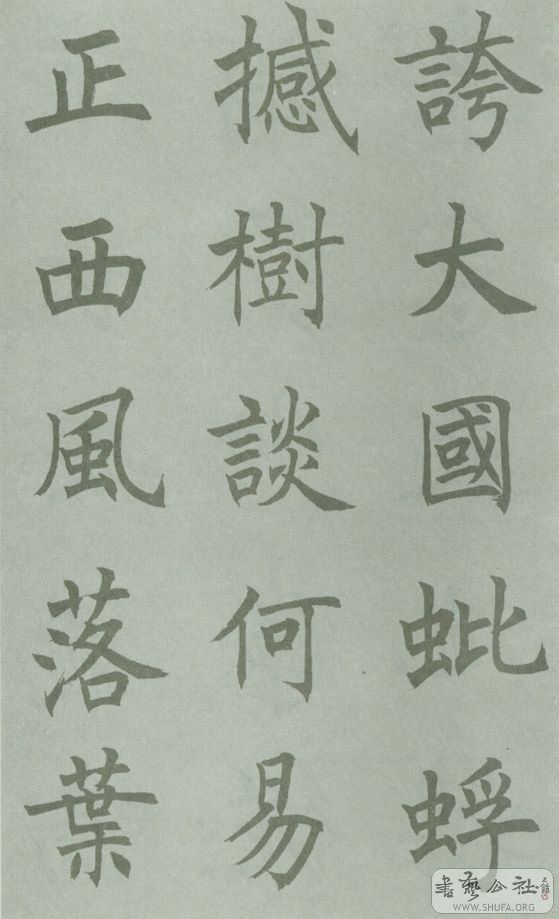 誇大國蚍蜉
撼樹談何易
正西風落葉
書藝公社
WWW.SHUFA.ORG